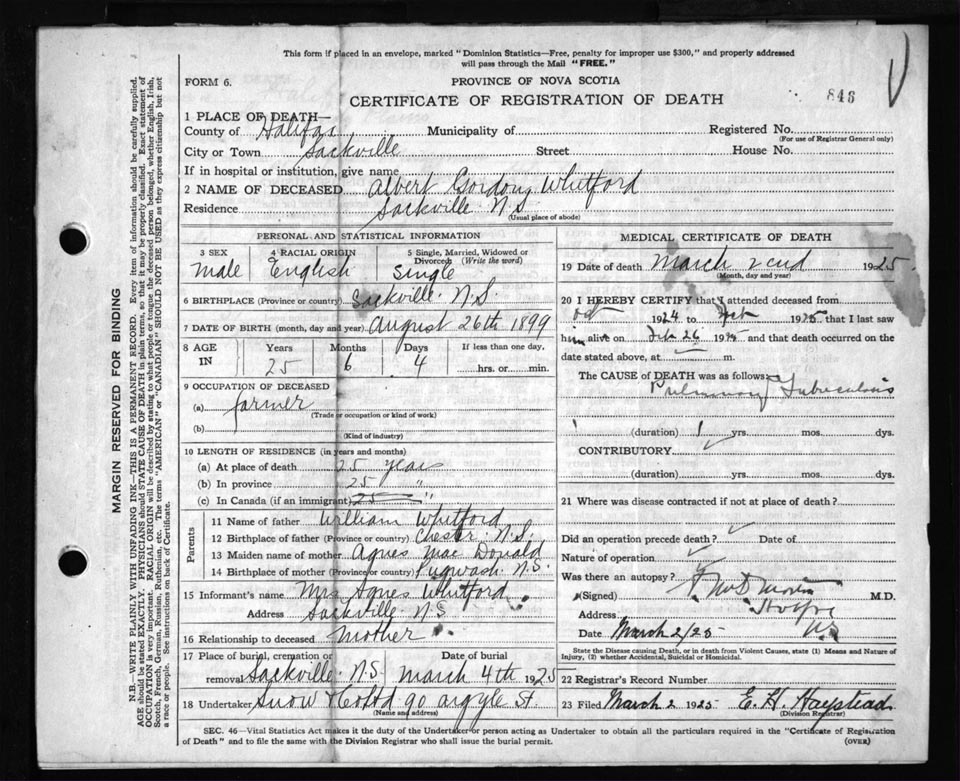 This form if placed in an envelope, marked "Dominion Statistics—Free, penalty for improper use $300," and properly addressed
will pass through the Mail "FREE."
FORM 6.
PROVINCE OF NOVA SCOTIA
CERTIFICATE OF REGISTRATION OF DEATH
846
1 PLACE OF DEATH—
County of Halifax Municipality of Registered No.
(For use of Registrar General only)
City or Town Sackville Street House No.
If in hospital or institution, give name
2 NAME OF DECEASED Albert Gordon Whitford
Residence Sackville N.S
(Usual place of abode)
PERSONAL AND STATISTICAL INFORMATION
3 SEX 4 RACIAL ORIGIN 5 Single, Married, Widowed or
Divorced (Write the word)
male English Single
6 BIRTHPLACE (Province or country) Sackville N.S.
7 DATE OF BIRTH (month, day and year) August 26th 1899
8 AGE IN Years Months Days If less than one day,
25 6 4 hrs. or min.
9 OCCUPATION OF DECEASED
(a) farmer
(Trade or occupation or kind of work)
(b)
(Kind of industry)
10 LENGTH OF RESIDENCE (in years and months)
(a) At place of death 25 years
(b) In province 25 "
(c) In Canada (if an immigrant) 25 "
Parents
11 Name of father William Whitford
12 Birthplace of father (Province or country) Chester N.S.
13 Maiden name of mother Agnes Mac Donald
14 Birthplace of mother (Province or country) Pugwash N.S.
15 Informant's name Mrs Agnes Whitford
Address Sackville N S
16 Relationship to deceased mother
17 Place of burial, cremation or removal Date of burial
Sackville N.S March 4th 1925
18 Undertaker Snow & Co Ltd 90 Argyle St.
(Name and address)
MEDICAL CERTIFICATE OF DEATH
19 Date of death March 2cnd 1925
(Month, day and year)
20 I HEREBY CERTIFY that I attended deceased from
Oct 1924 to Feb 1925 that I last saw
him alive on Feb 26 1925 and that death occurred on the
date stated above, at m.
The CAUSE of DEATH was as follows:
Pulmonary Tuberculosis
(duration) 1 yrs. mos. dys.
CONTRIBUTORY
(duration) yrs. mos. dys.
21 Where was disease contracted if not at place of death?
Did an operation precede death? Date of
Nature of operation
Was there an autopsy?
(Signed) M.D.
Address
N.S
Date March 2/25
State the Disease causing Death, or in death from Violent Causes, state (1) Means and Nature of
Injury, (2) whether Accidental, Suicidal or Homicidal.
22 Registrar's Record Number
23 Filed March 2 1925 E. H. Haystead
(Division Registrar)
SEC. 46—Vital Statistics Act makes it the duty of the Undertaker or person acting as Undertaker to obtain all the particulars required in the "Certificate of Registration
of Death" and to file the same with the Division Registrar who shall issue the burial permit. (OVER)
MARGIN RESERVED FOR BINDING
N.B.—WRITE PLAINLY WITH UNFADING INK—THIS IS A PERMANENT RECORD. Every item of information should be carefully supplied.
AGE should be stated EXACTLY. PHYSICIANS should STATE CAUSE OF DEATH in plain terms, so that it may be properly classified. Exact statement of
OCCUPATION is very important. RACIAL ORIGIN will be described by stating to what people or tongue the deceased person belonged, whether English, Irish,
Scotch, French, German, Russian, Ruthenian, etc. The terms "AMERICAN" or "CANADIAN" SHOULD NOT BE USED as they express citizenship but not
a race or people. See instructions on back of Certificate.